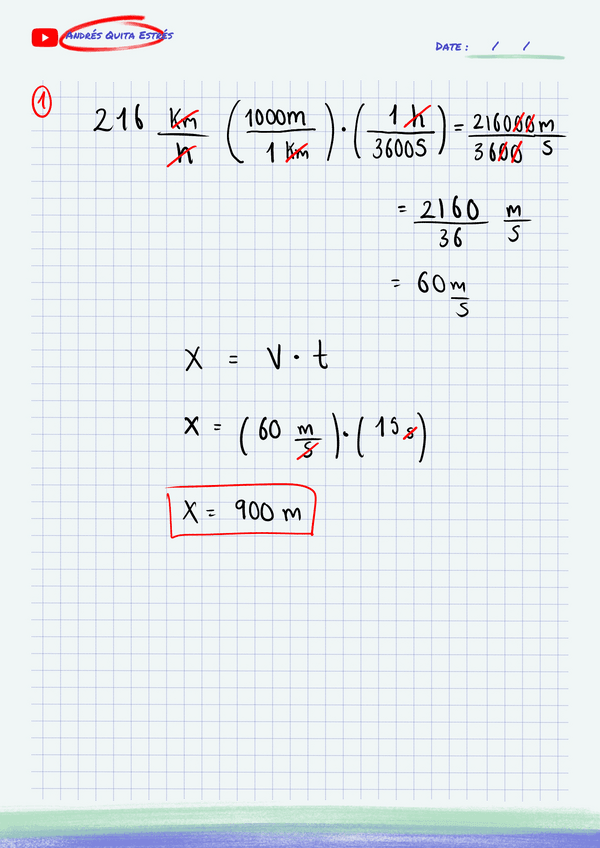 Andrés Quita Estrés
Date: / /
1
216 Km/h (1000m/1Km)·(1h/3600S) = 216000m/3600 S
= 2160/36 m/S
= 60 m/S
X = V·t
X = (60 m/S)·(15s)
X = 900 m